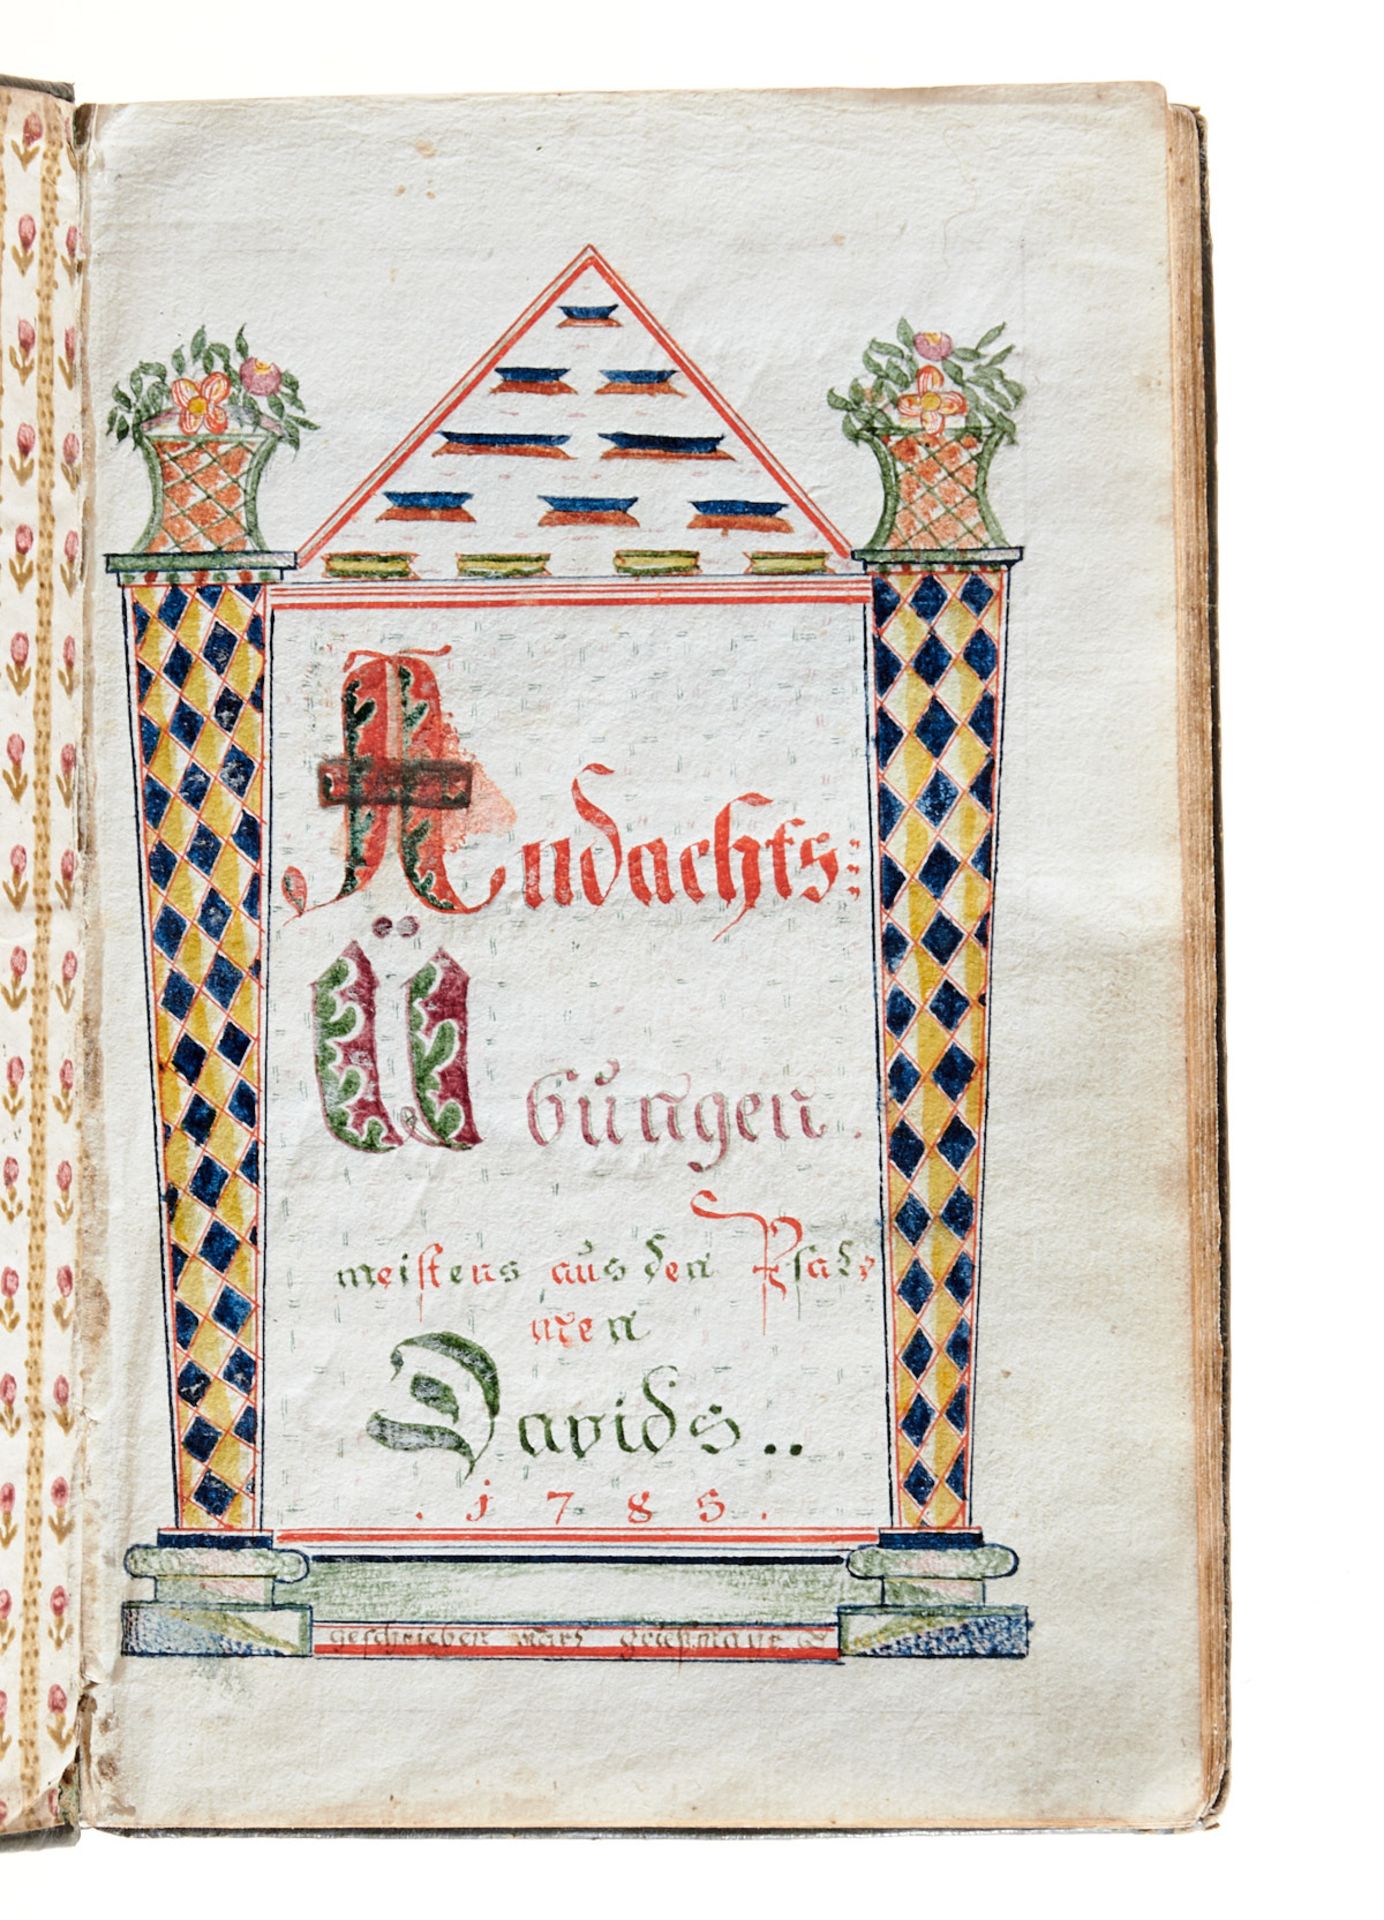 Andachts:
Übungen.
meistens aus den Psal:
men
Davids..
. 1785.
geschrieben